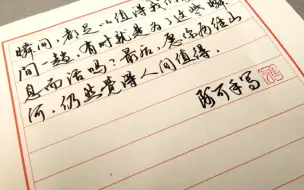 瞬间，都是以值得我们
间一趟 有时就是为了这些瞬
息而活吗？最后，愿你历经山
河，仍然觉得人间值得。
阿可手写